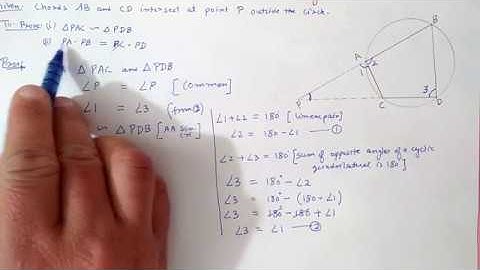 Given: Chords AB and CD intersect at point P outside the circle.
To Prove: (i) △PAC ∼ △PDB
(ii) PA·PB = PC·PD
Proof
△ PAC and △PDB
∠P = ∠P [Common]
∠1 = ∠3 (from ②)
∼ △PDB [AA
∠1+∠2 = 180° [Linear pair]
∠2 = 180-∠1 —①
∠2+∠3 = 180° [sum of opposite angles of a cyclic
quadrilateral is 180°]
∠3 = 180°-∠2
∠3 = 180°-(180-∠1)
∠3 = 180°-180+∠1
∠3 = ∠1 —②
B
A
1
2
3
P
C
D